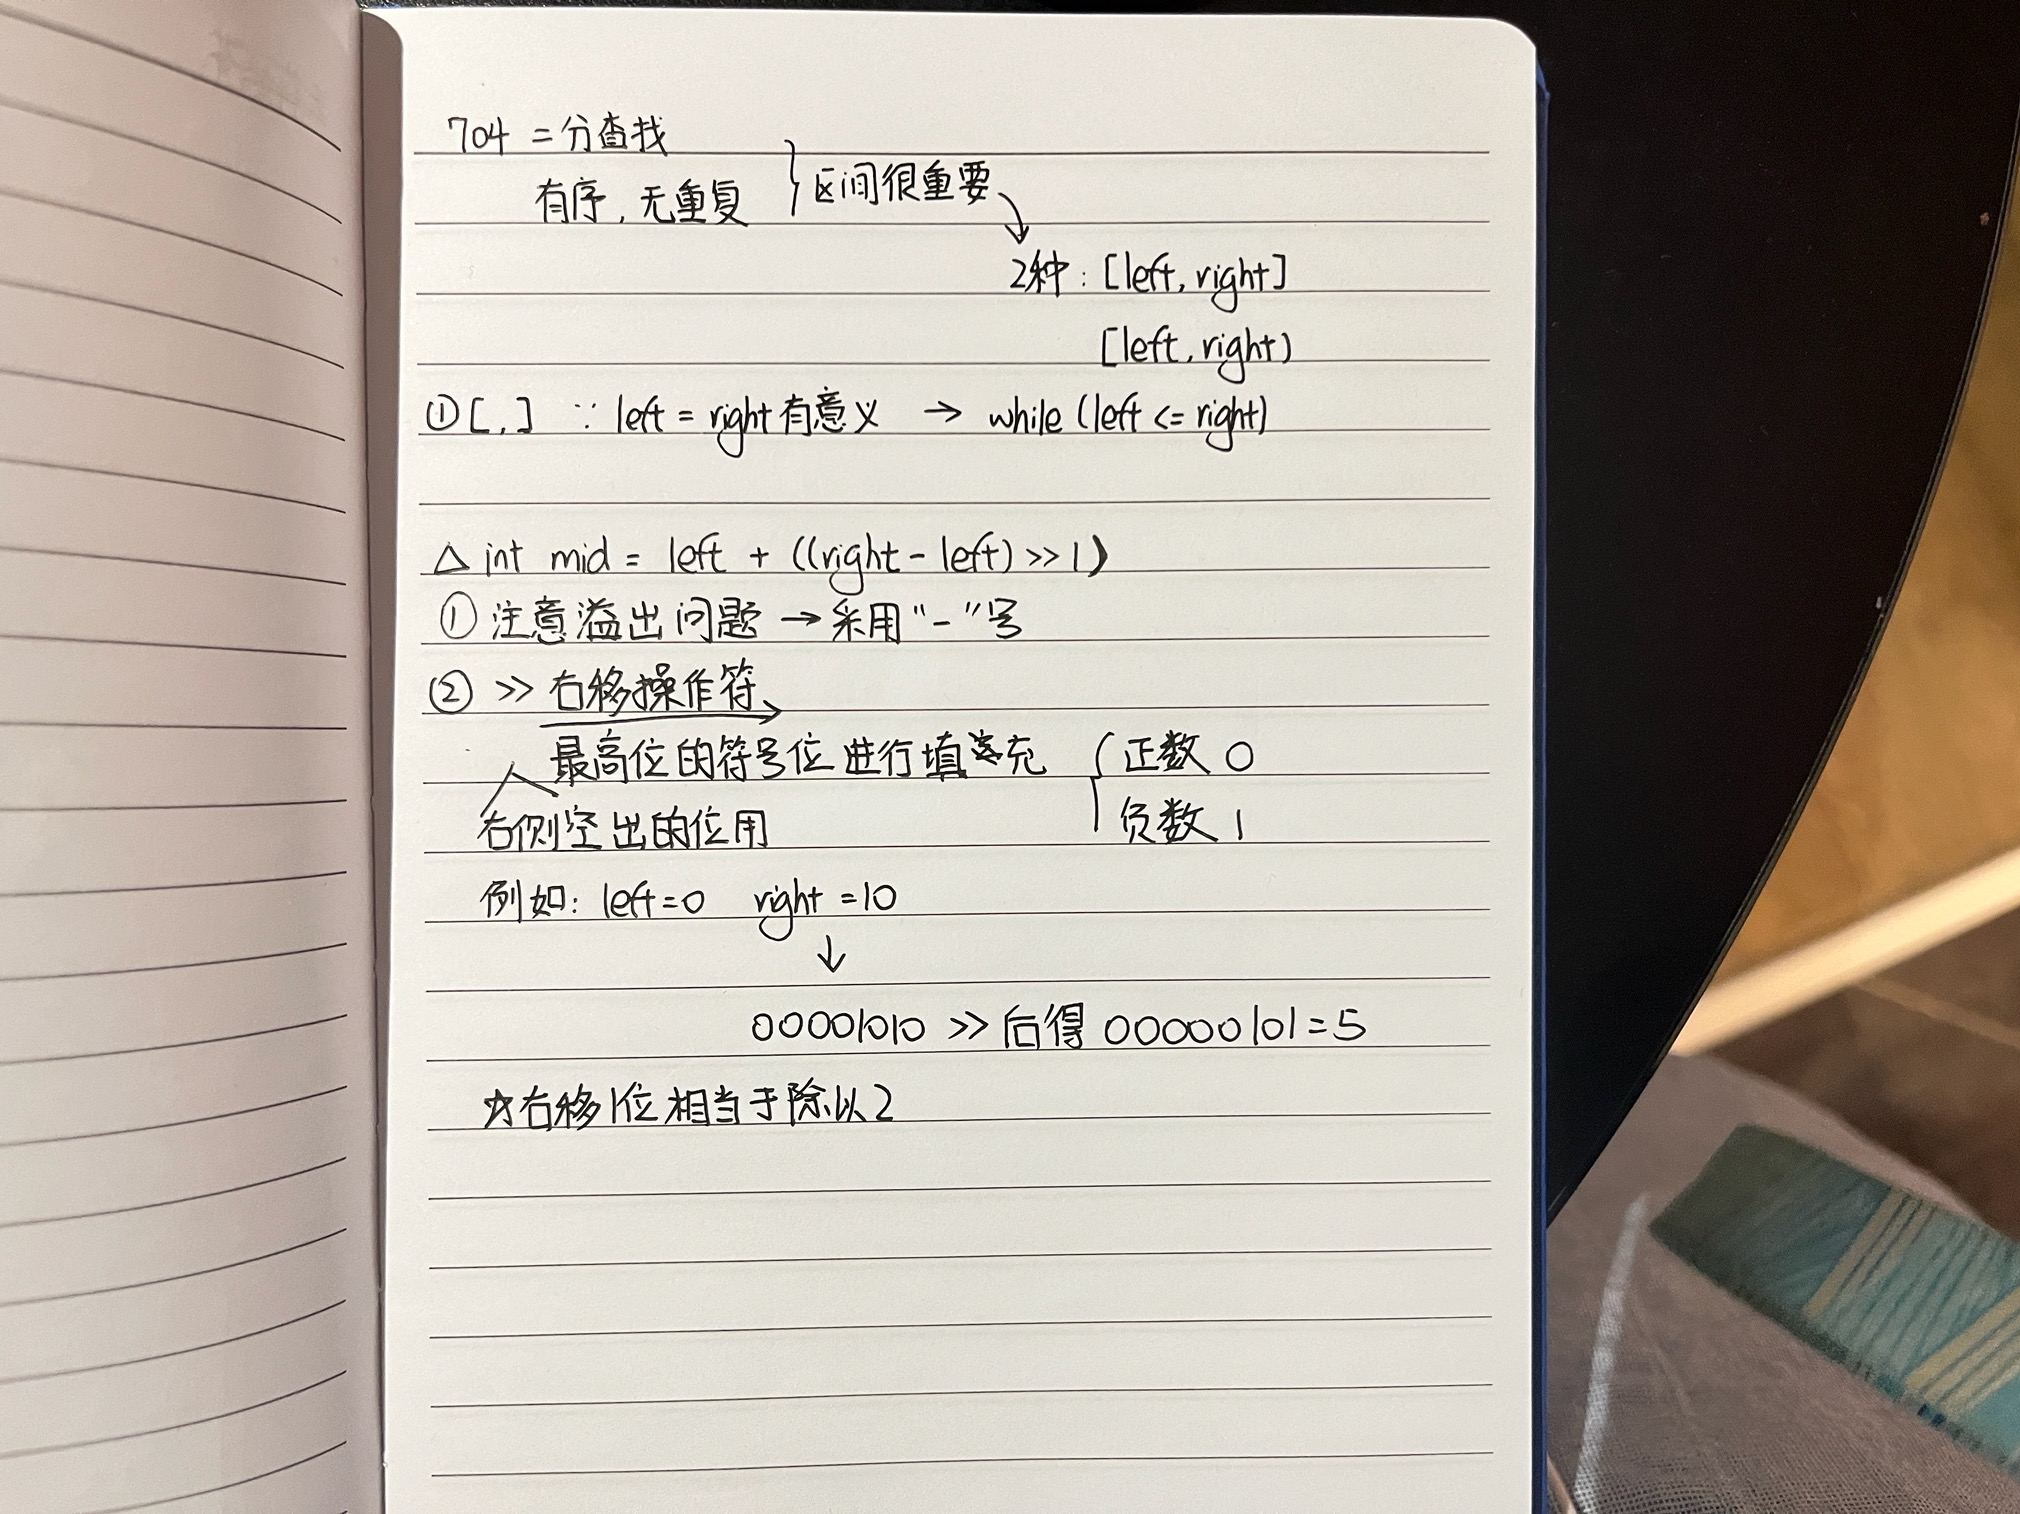 704 二分查找
有序，无重复 } 区间很重要
2种：[left, right]
[left, right)
① [ , ] ∵ left = right 有意义 → while (left <= right)
△ int mid = left + ((right - left) >> 1)
① 注意溢出问题 → 采用“-”号
② >> 右移操作符
最高位的符号位进行填充 { 正数 0
右侧空出的位用 负数 1
例如：left=0 right=10
↓
00001010 >> 后得 00000101=5
☆右移1位相当于除以2